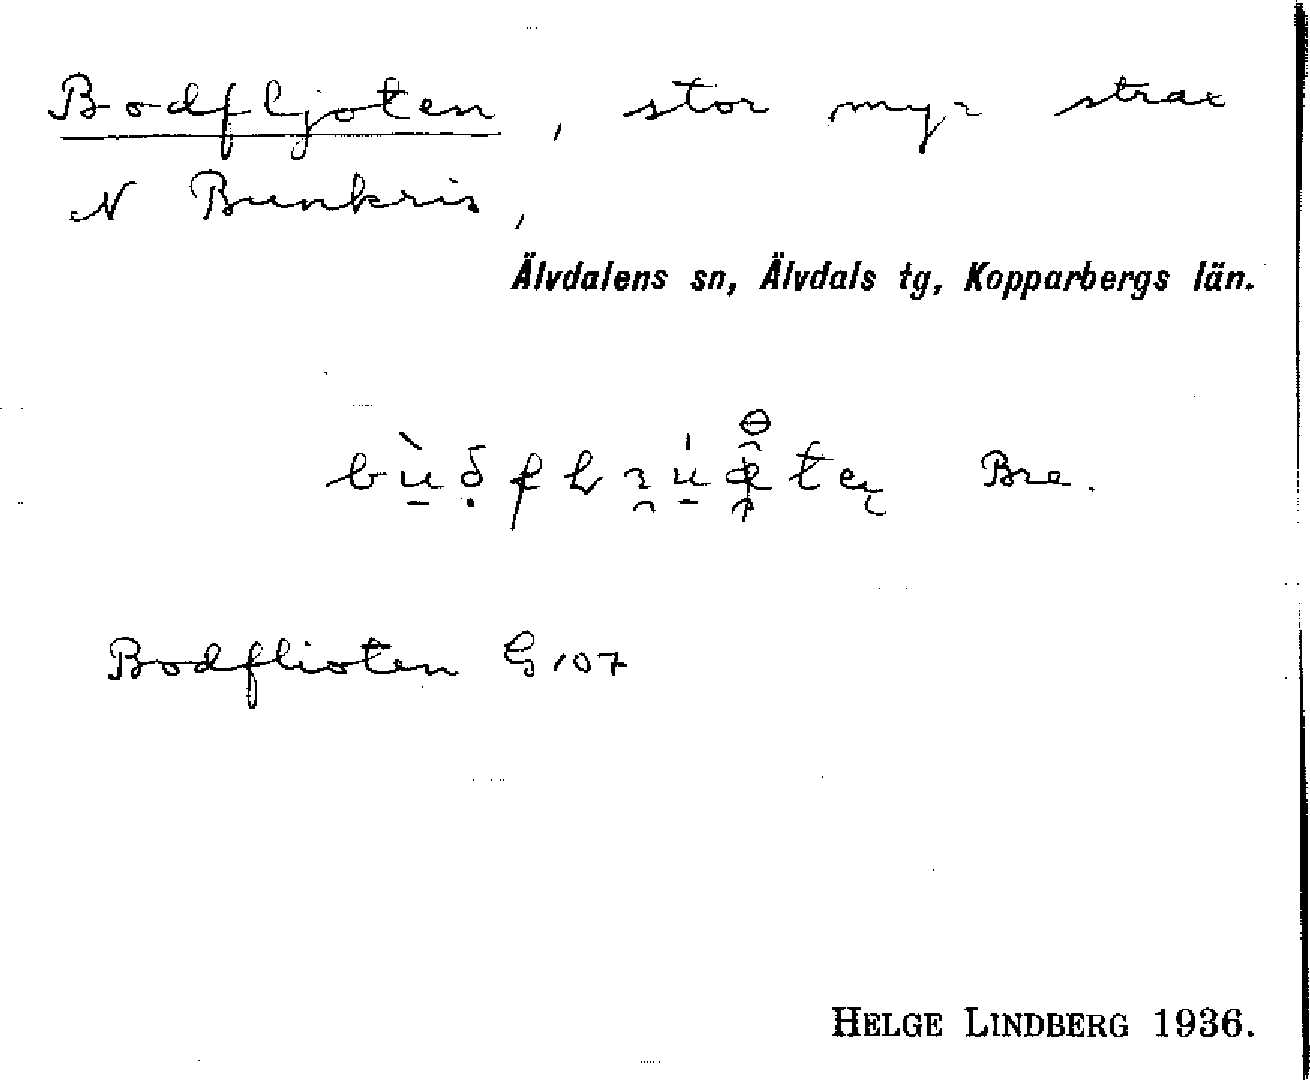 Bodfljoten, stor myr strax
N Bunkris,
Älvdalens sn, Älvdals tg, Kopparbergs län.
Bre.
Bodflioten G 107
HELGE LINDBERG 1936.